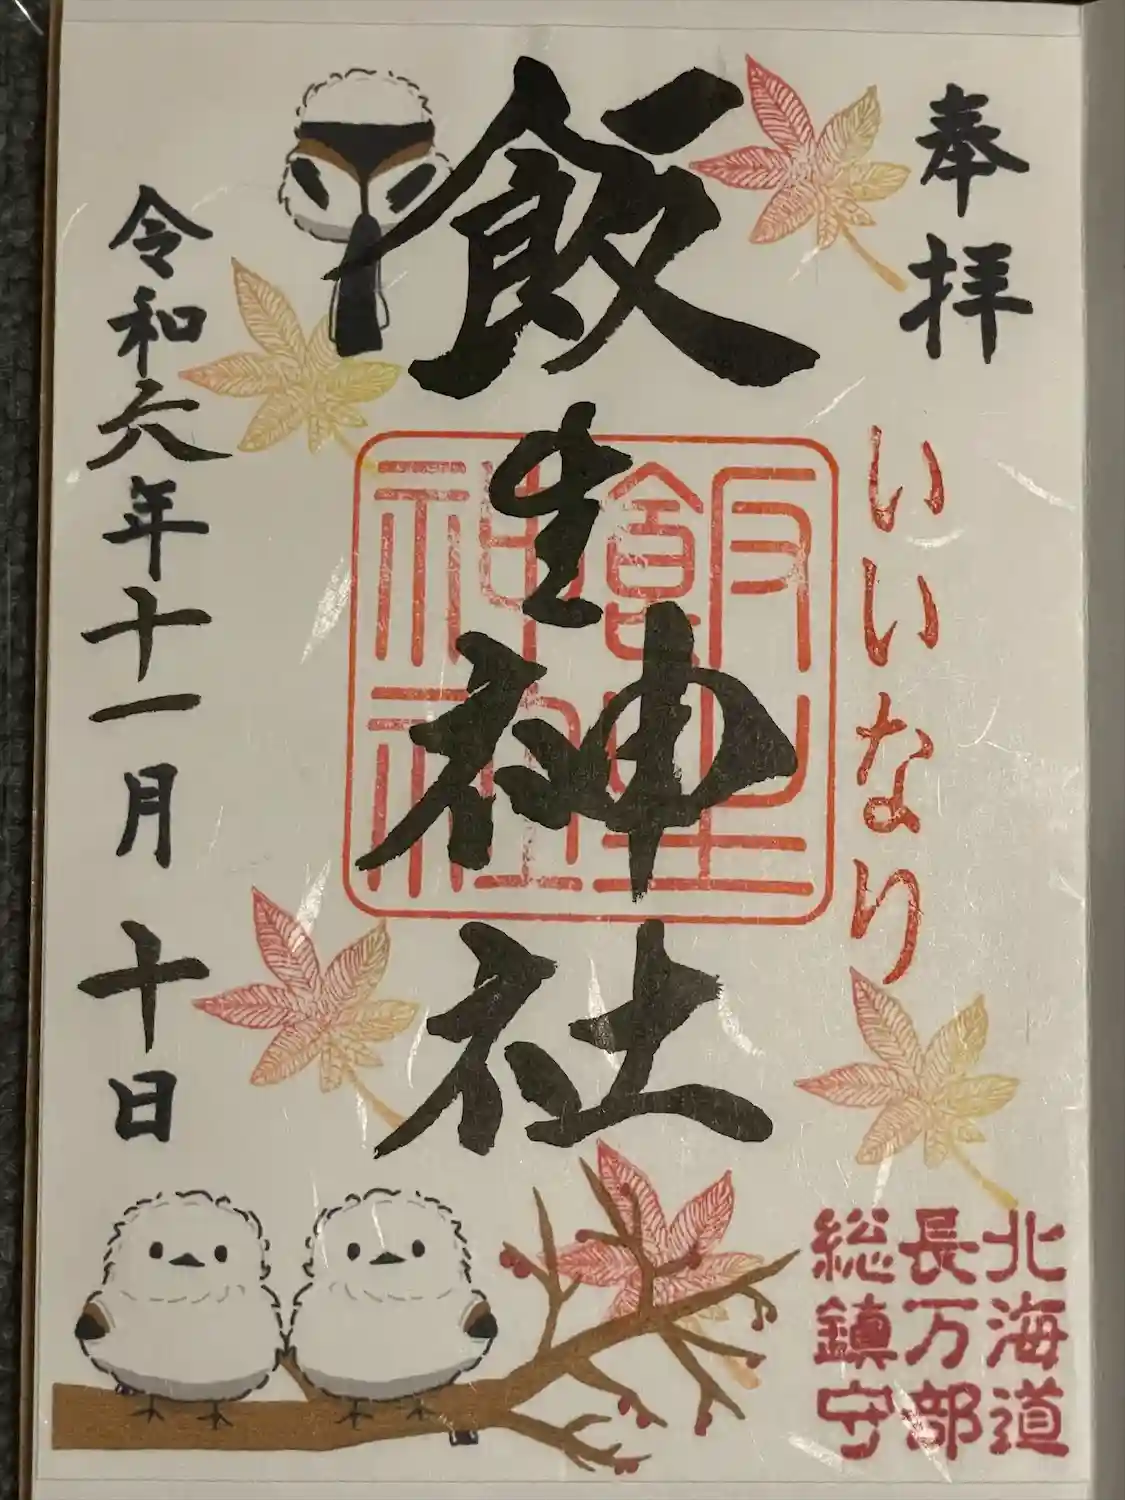 奉拝
いいなり
北海道
長万部
総鎮守
飯生神社
飯生
神社
令和六年十一月十日